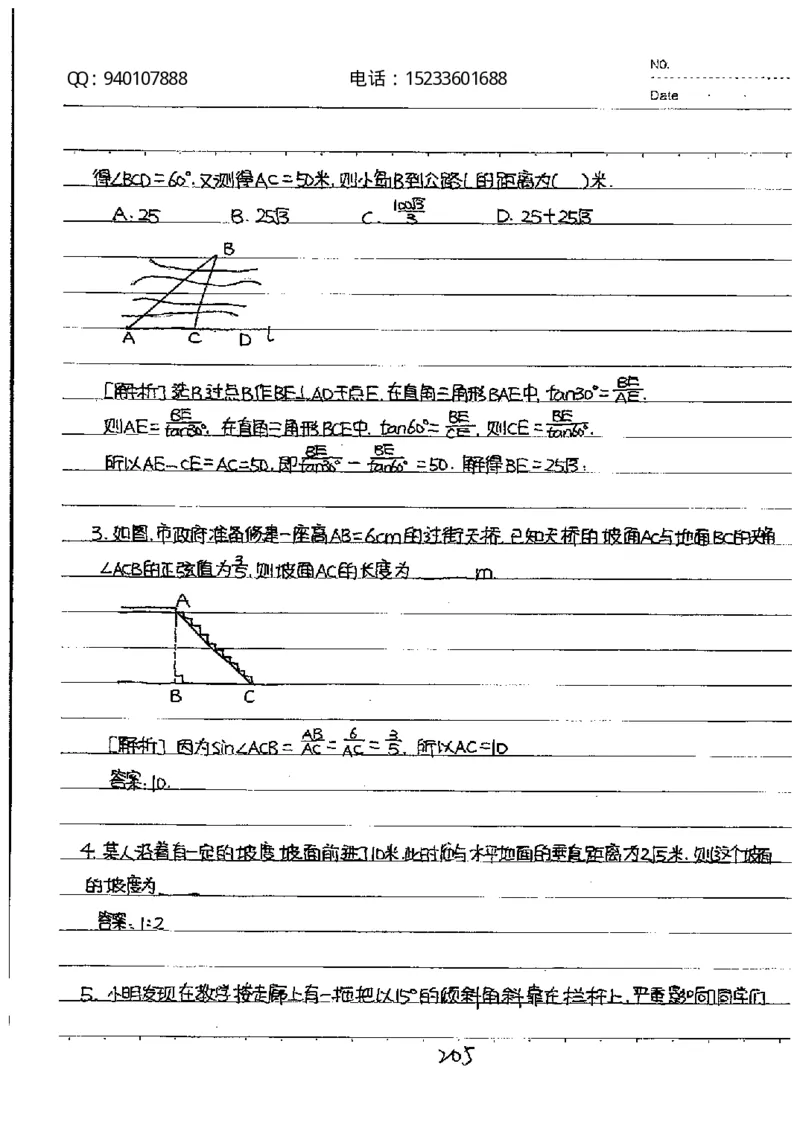 QQ：940107888 电话：15233601688 NO.
Date
得∠BCD=60°,又测得AC=50米,则小岛B到公路l的距离为( )米.
A.25 B.25√3 C.100√3/3 D.25+25√3
B
A C D l
[解析]选B.过点B作BE⊥AD于点E,在直角三角形BAE中,tan30°=BE/AE,
则AE=BE/tan30°,在直角三角形BCE中,tan60°=BE/CE,则CE=BE/tan60°.
所以AE-CE=AC=50,即BE/tan30°-BE/tan60°=50.解得BE=25√3.
3.如图,市政府准备修建一座高AB=6cm的过街天桥,已知天桥的坡面AC与地面BC的夹角
∠ACB的正弦值为3/5,则坡面AC的长度为 m.
A
B C
[解析]因为sin∠ACB=AB/AC=6/AC=3/5,所以AC=10
答案:10.
4.某人沿着有一定的坡度坡面前进了10米,此时他与水平地面的垂直距离为2√5米,则这个坡面
的坡度为
答案:1:2
5.小明发现在教学楼走廊上有一拖把以15°的倾斜角斜靠在栏杆上,严重影响同学们
205